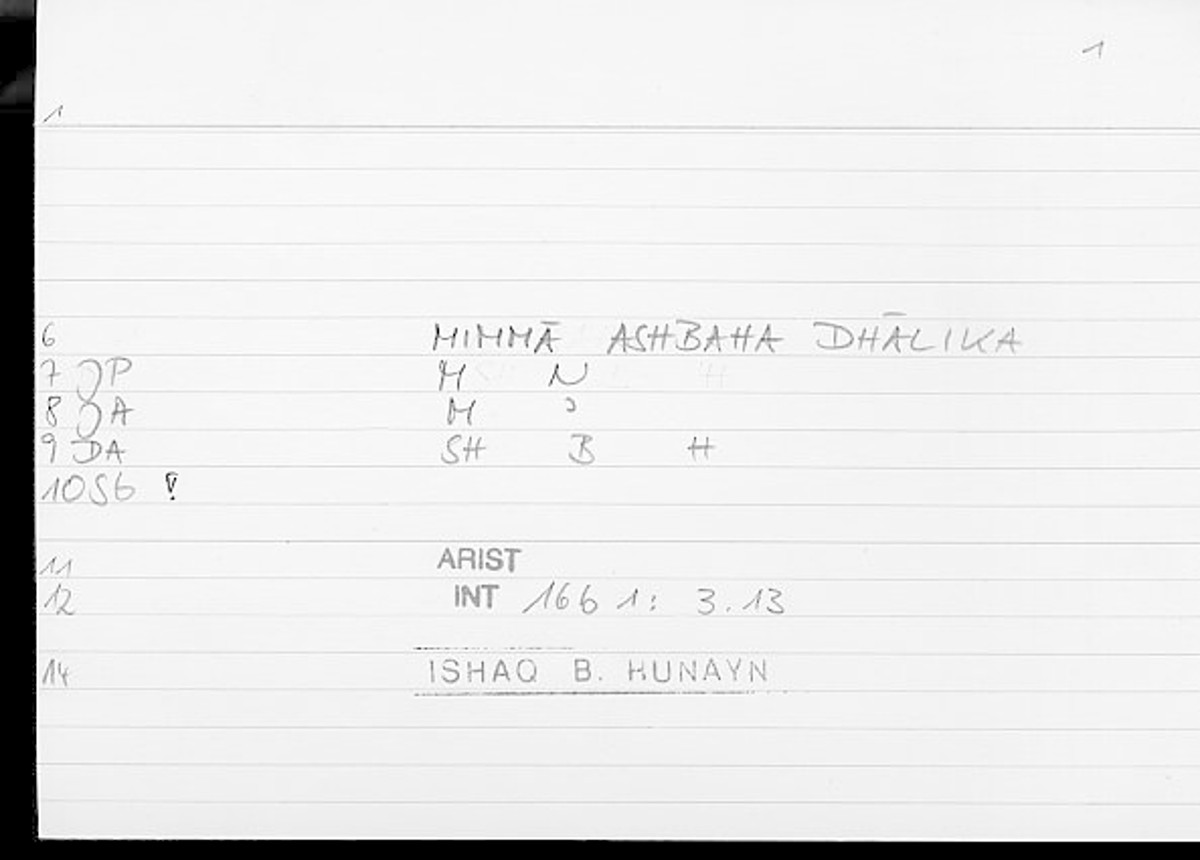 1
1
6 MIMMĀ ASHBAHA DHĀLIKA
7 JP M N
8 JA M ɔ
9 DA SH B H
10 S6 !
11 ARIST
12 INT 166 1: 3.13
14 ISHAQ B. HUNAYN